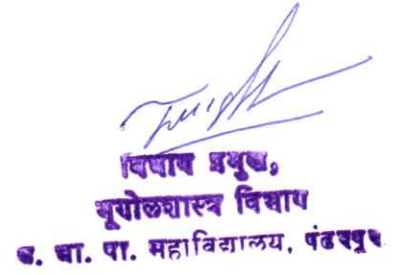 विभाग प्रमुख,
भूगोलशास्त्र विभाग
क. भा. पा. महाविद्यालय, पंढरपूर